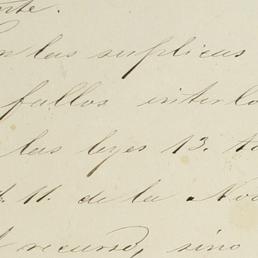 las suplicas
fallos interlo
las leyes 13. t
11. de la Nov
recurso, sino